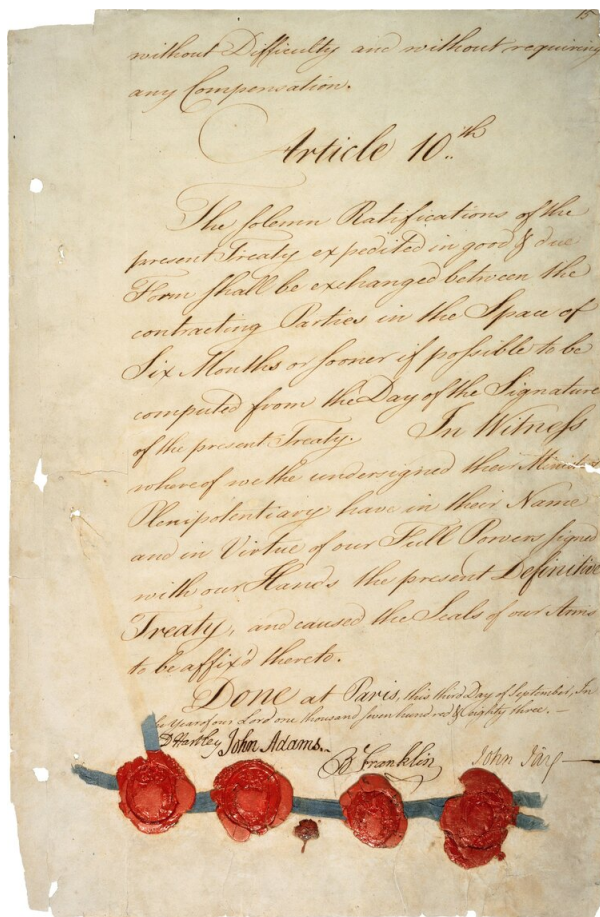 15
without Difficulty and without requiring
any Compensation.
Article 10.th
The solemn Ratifications of the
present Treaty expedited in good & due
Form shall be exchanged between the
contracting Parties in the Space of
Six Months or sooner if possible to be
computed from the Day of the Signature
of the present Treaty. In Witness
whereof we the undersigned their Ministers
Plenipotentiary have in their Name
and in Virtue of our Full Powers signed
with our Hands the present Definitive
Treaty, and caused the Seals of our Arms
to be affix'd thereto.
DONE at Paris, this third Day of September, In
the Year of our Lord one thousand seven hundred & eighty three.—
D Hartley John Adams. B Franklin John Jay—